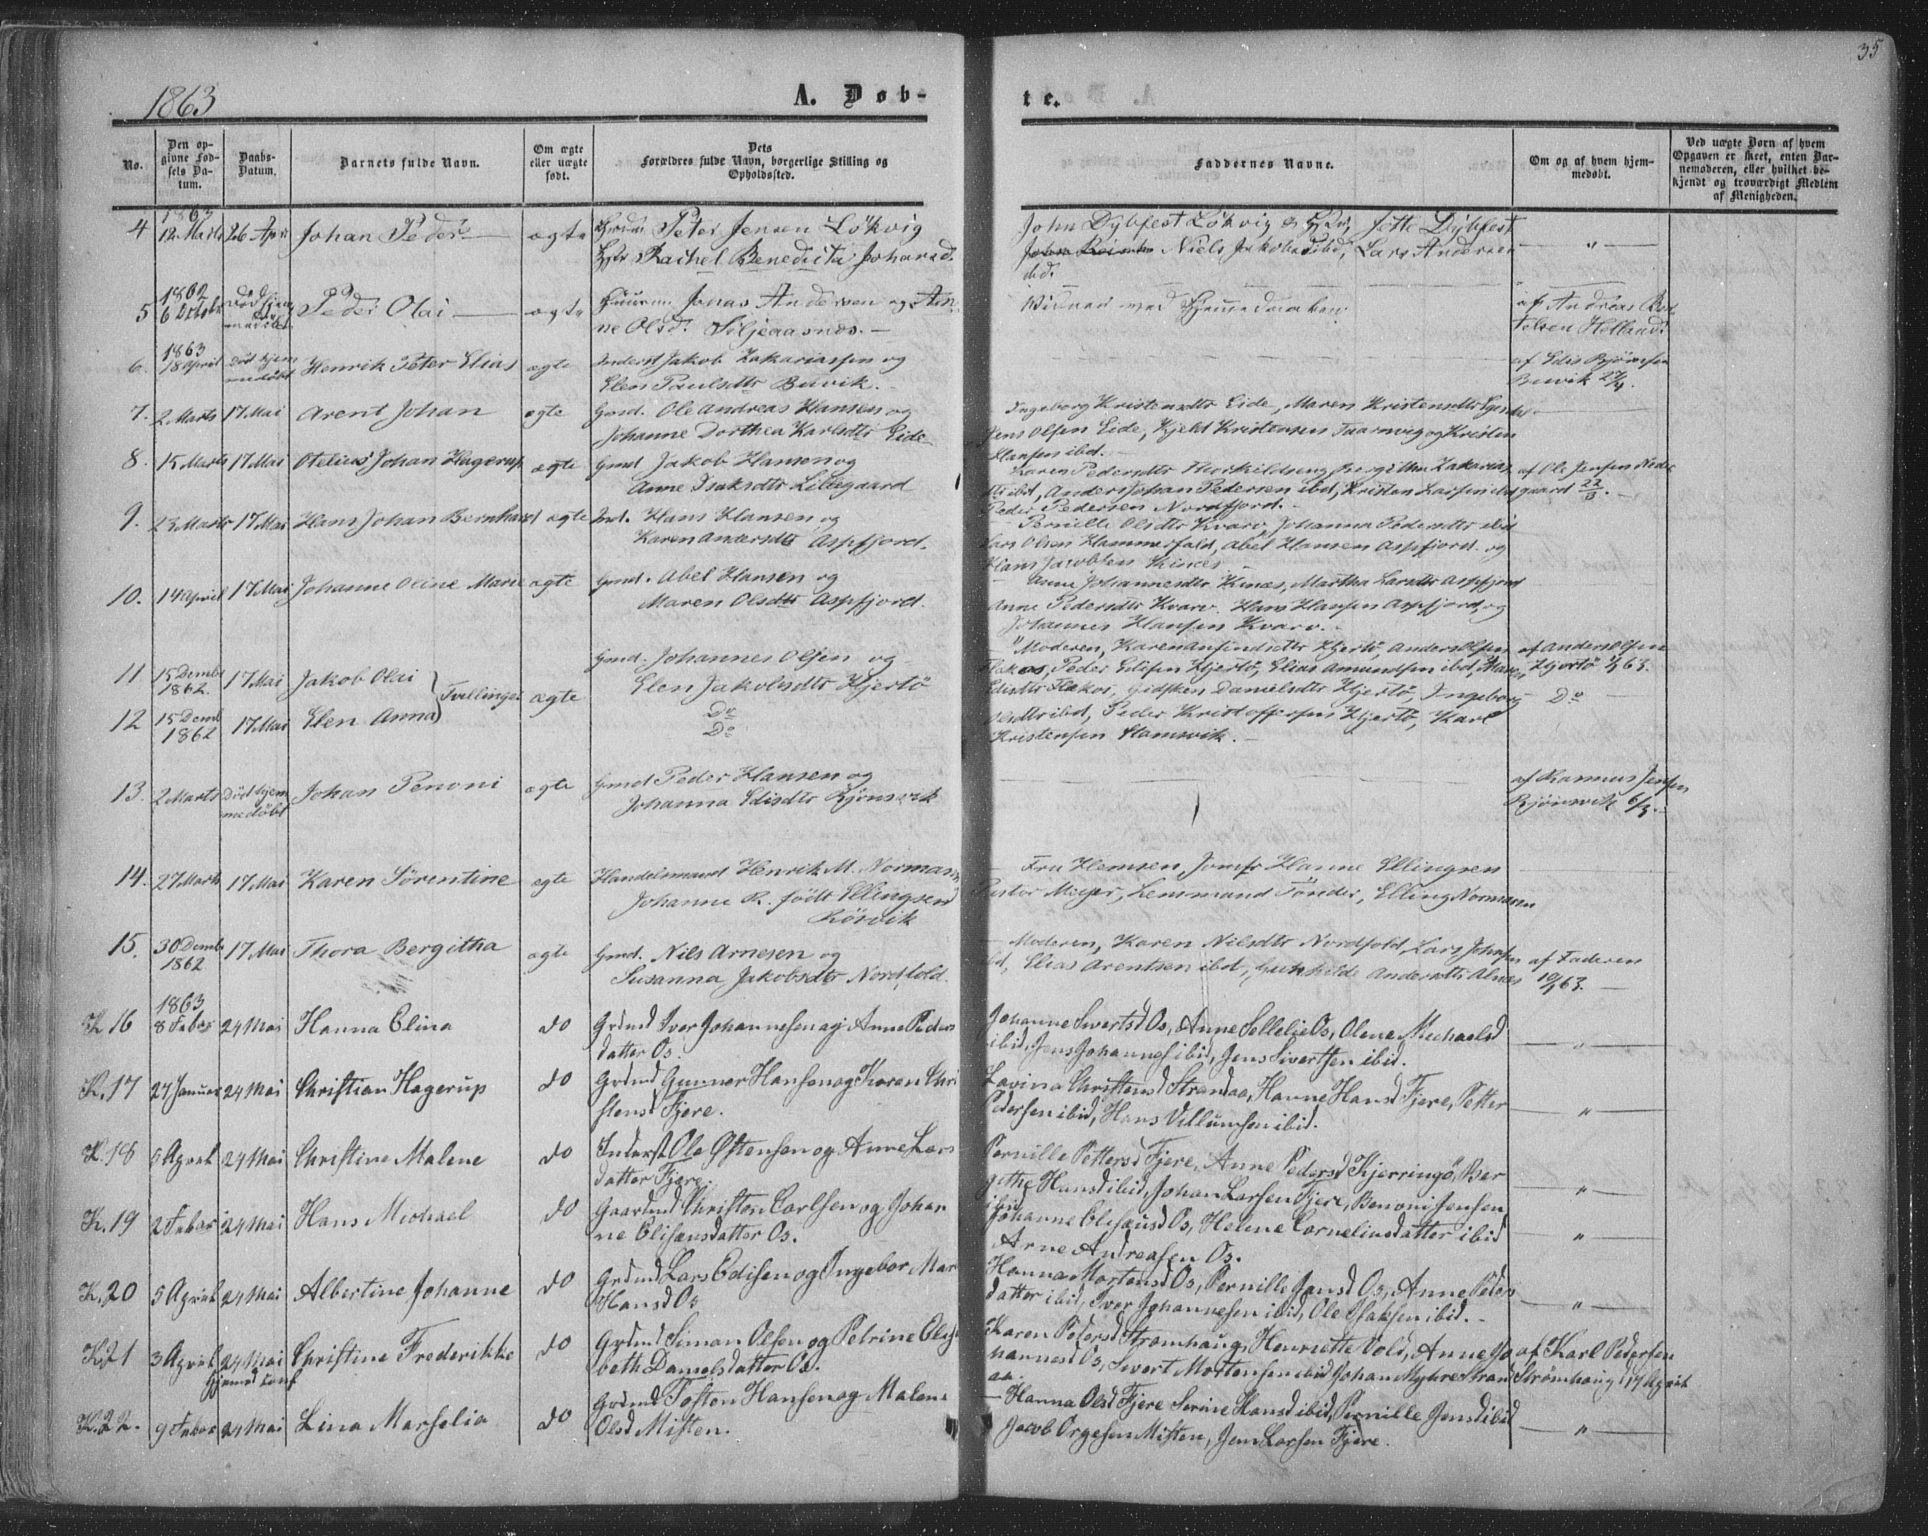 1863
A. Døb-
te.
35
No.
Den op-
givne Fød-
sels Da-
tum.
Daabs-
Datum.
Barnets fulde Navn.
Om ægte
eller uægte
født.
Dets
Forældres fulde Navn, borgerlige Stilling og
Opholdssted.
Faddernes Navne.
Om og af hvem hjem-
medøbt.
Ved uægte Børn af hvem
Opgaven er skeet, enten Bar-
nemoderen, eller hvilket be-
kjendt og troværdigt Medlem
af Menigheden.
1863
4 12 Marts 26 Apr Johan Peder ægte Peter Jensen Løkvig
Rachel Benedicta Johansd.
John Dybfest Løkvig Jette Dybfest
Niels Jakobs ibid, Lars Andersen
ibid.
1862
5 6 Octobr Peder Olai ægte Jonas Andersen og An-
ne Olsd. Siljeaasnes.
af Andreas
1863
6. 18 April Død hjem
medøbt Henrik Peter Elias ægte Inderst Jakob Zakariassen og
Elen Paulsdtr Buvik.
af Edis Bjørnsen
Buvik 27/4.
7. 2 Marts 17 Mai Arent Johan ægte Gmd. Ole Andreas Hansen og
Johanne Dorthea Karlsdtr Eide
Ingeborg Kristensdtr Eide, Maren Kristensdtr
Jens Olsen Eide, Kjeld Kristensen Taarnvig og Kristen
Hansen ibd.
8. 15 Marts 17 Mai Otelius Johan Hagerup ægte Gmd Jakob Hansen og
Anne Isaksdtr Lillegaard
Karen Pedersdtr Thorkildseng, Bergitha Zakarias
dtr ibd, Anders Johan Pedersen ibd, Kristen Larsen ibd
Peder Pedersen Nordfjord.
af Ole Jensen Nede
gaard 22/3.
9. 23 Marts 17 Mai Hans Johan Bernhard ægte Ind. Hans Hansen og
Karen Andersdtr Aspfjord.
Pernille Olsdtr Kvarv, Johanna Pedersdtr ibd
Lars Olsen Hammerfald, Abel Hansen Aspfjord og
Hans Jacobsen Kines
10. 14 April 17 Mai Johanne Oline Marie ægte Gmd. Abel Hansen og
Maren Olsdtr Aspfjord.
Anne Johannesdtr Kines, Martha Larsdtr Aspfjord
Anne Pedersdtr Kvarv. Hans Hansen Aspfjord, og
Johannes Hansen Kvarv.
11 15 Decmb
1862. 17 Mai Jakob Olai Tvillinger ægte Gmd. Johannes Olsen og
Elen Jakobsdtr Hjertø
12 15 Decmb
1862 17 Mai Elen Anna Do
Do
Moderen, Karen Amundsdtr Hjertø, Anders Olsen
Flakos, Peder Edisen Hjertø, Elias Amundsen ibd, Maren
Edisdtr Flakos, Gidsken Danielsdtr Hjertø, Ingeborg
Olsdtr ibd, Peder Kristoffersen Hjertø, Karl
Kristensen Stamsvik.
af Anders Olsen
Hjertø 1/1 63.
Do
13. 2 Marts Død hjem
medøbt Johan Penoni ægte Gmd Peder Hansen og
Johanna Edisdtr Bjørnsvik
af Rasmus Jensen
Bjørnsvik 6/3.
14. 27 Marts 17 Mai Karen Sørentine ægte Handelsmand Henrik M. Normann
Johanne R. født Ellingsen
Løsvik
Fru Klemsen, Jomfr Hanne Ellingsen
Pastor Meyer, Lensmand Tønder, Elling Normann
15. 30 Decmb
1862 17 Mai Thora Bergitha ægte Gmd. Nils Arnesen og
Susanna Jakobsdtr Nordfold.
Moderen, Karen Nilsdtr Nordfold, Lars Johnsen
ibd, Elias Arentsen ibd, Gunhilde Andersdtr Alnes
af Faderen
10/1 63.
1863
K. 16 8 Febr 24 Mai Hanna Elina do Grdmd Iver Johannesen og Anne Peders
datter Os.
Johanne Sivertsd Os, Anne Sellelie Os, Olene Michaelsd
ibid, Jens Johannes ibid, Jens Sivertsen ibid.
K. 17 27 Januar 24 Mai Christian Hagerup do Grdmd Gunner Hansen og Karen Chri
stensd Fjere.
Lavina Christensd Strandaa, Hanne Hansd Fjere, Petter
Pedersen ibid, Hans Villumsen ibid.
K. 18 5 April 24 Mai Christine Malene do Inderst Ole Østensen og Anne Lars
datter Fjere.
Pernille Pettersd Fjere, Anne Pedersd Kjerringø, Ber
githe Hansd ibid, Johan Larsen Fjere, Benoni Jensen
ibid
K. 19 2 Febr 24 Mai Hans Michael do Gaardmd Christen Carlsen og Johan
ne Elisæusdatter Os.
Johanne Elisæusd Os, Helene Corneliusdatter ibid
Arne Andreasen Os.
K. 20 5 April 24 Mai Albertine Johanne do Grdmd Lars Edisen og Ingebor Mar
Hansd Os
Hanna Mortensd Os, Pernille Jansd Os, Anne Peders
datter ibid, Iver Johannesen ibid, Ole Isaksen ibid.
K. 21 3 April 24 Mai Christine Frederikke do Grdmd Simon Olsen og Petrine Elisa
beth Danielsdatter Os.
Hjemd.
Karen Pedersd Strømhaug, Henriette Vold, Anne Jo
hannesd Os, Sivert Mortensen ibid Johan Myhre Strand
aa.
af Karl Pedersen
Strømhaug d 17 April
K. 22. 9 Febr 24 Mai Lina Marselia do Grdmd Tosten Hansen og Malene
Olsd Misten.
Hanna Olsd Fjere Serine Hansd ibid, Pernille Jensd ibid
Jacob Orgesen Misten, Jens Larsen Fjere.